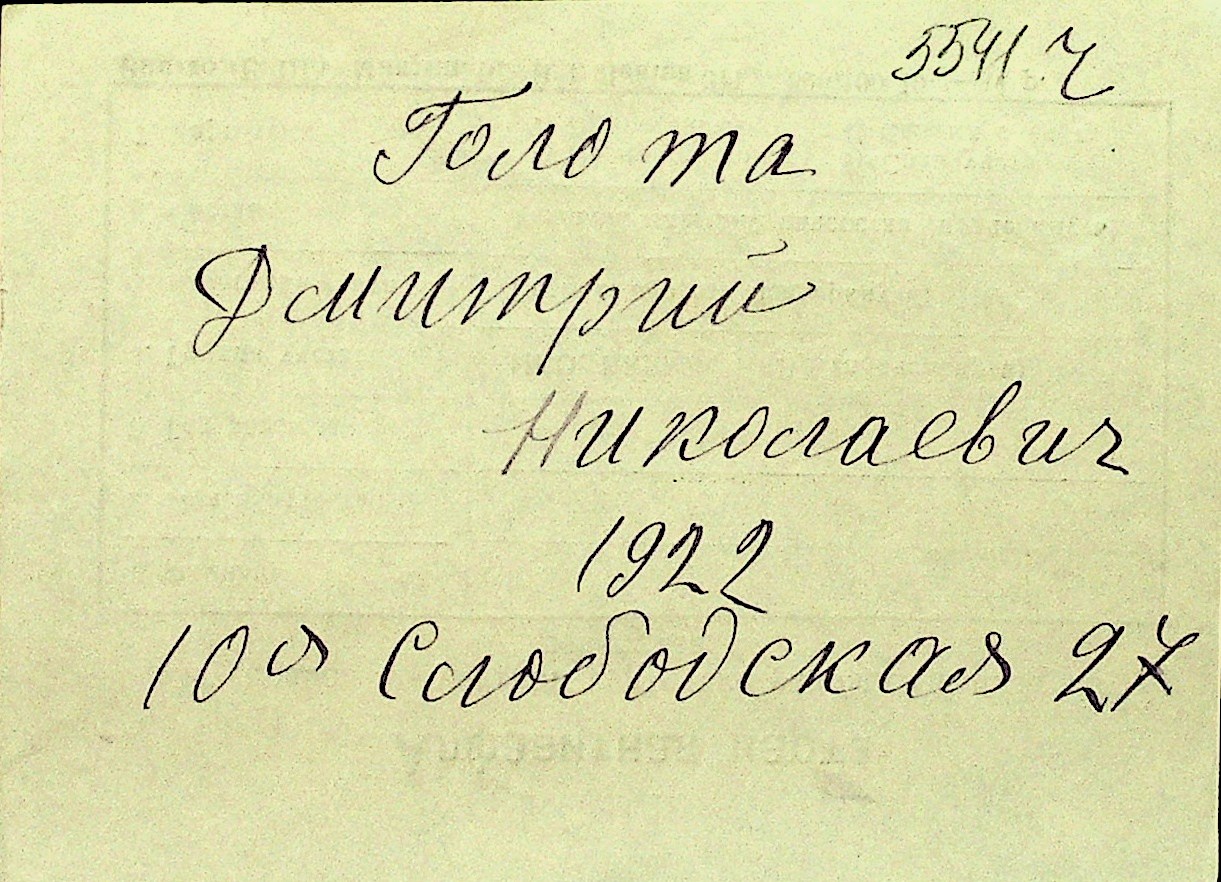 5541 ч
Голота
Дмитрий
Николаевич
1922
10я Слободская 27